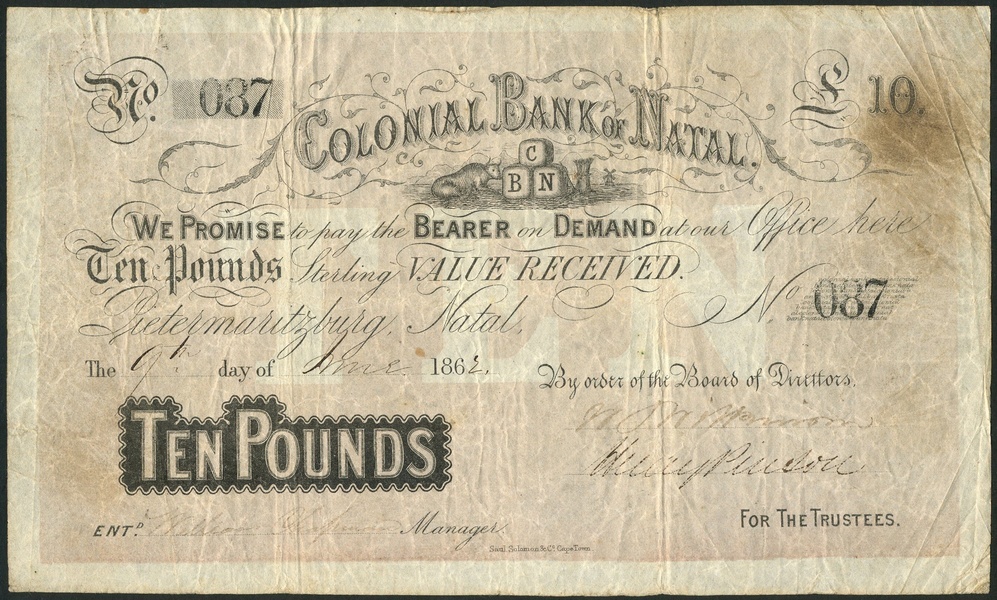 No. 087
£ 10.
COLONIAL BANK OF NATAL.
C
B N
WE PROMISE to pay the BEARER on DEMAND at our Office here
Ten Pounds Sterling VALUE RECEIVED.
Pietermaritzburg, Natal,
No 087
The 9th day of June 1862.
By order of the Board of Direttors.
TEN POUNDS
ENTD. Manager.
FOR THE TRUSTEES.
Saul Solomon & Co. Cape Town